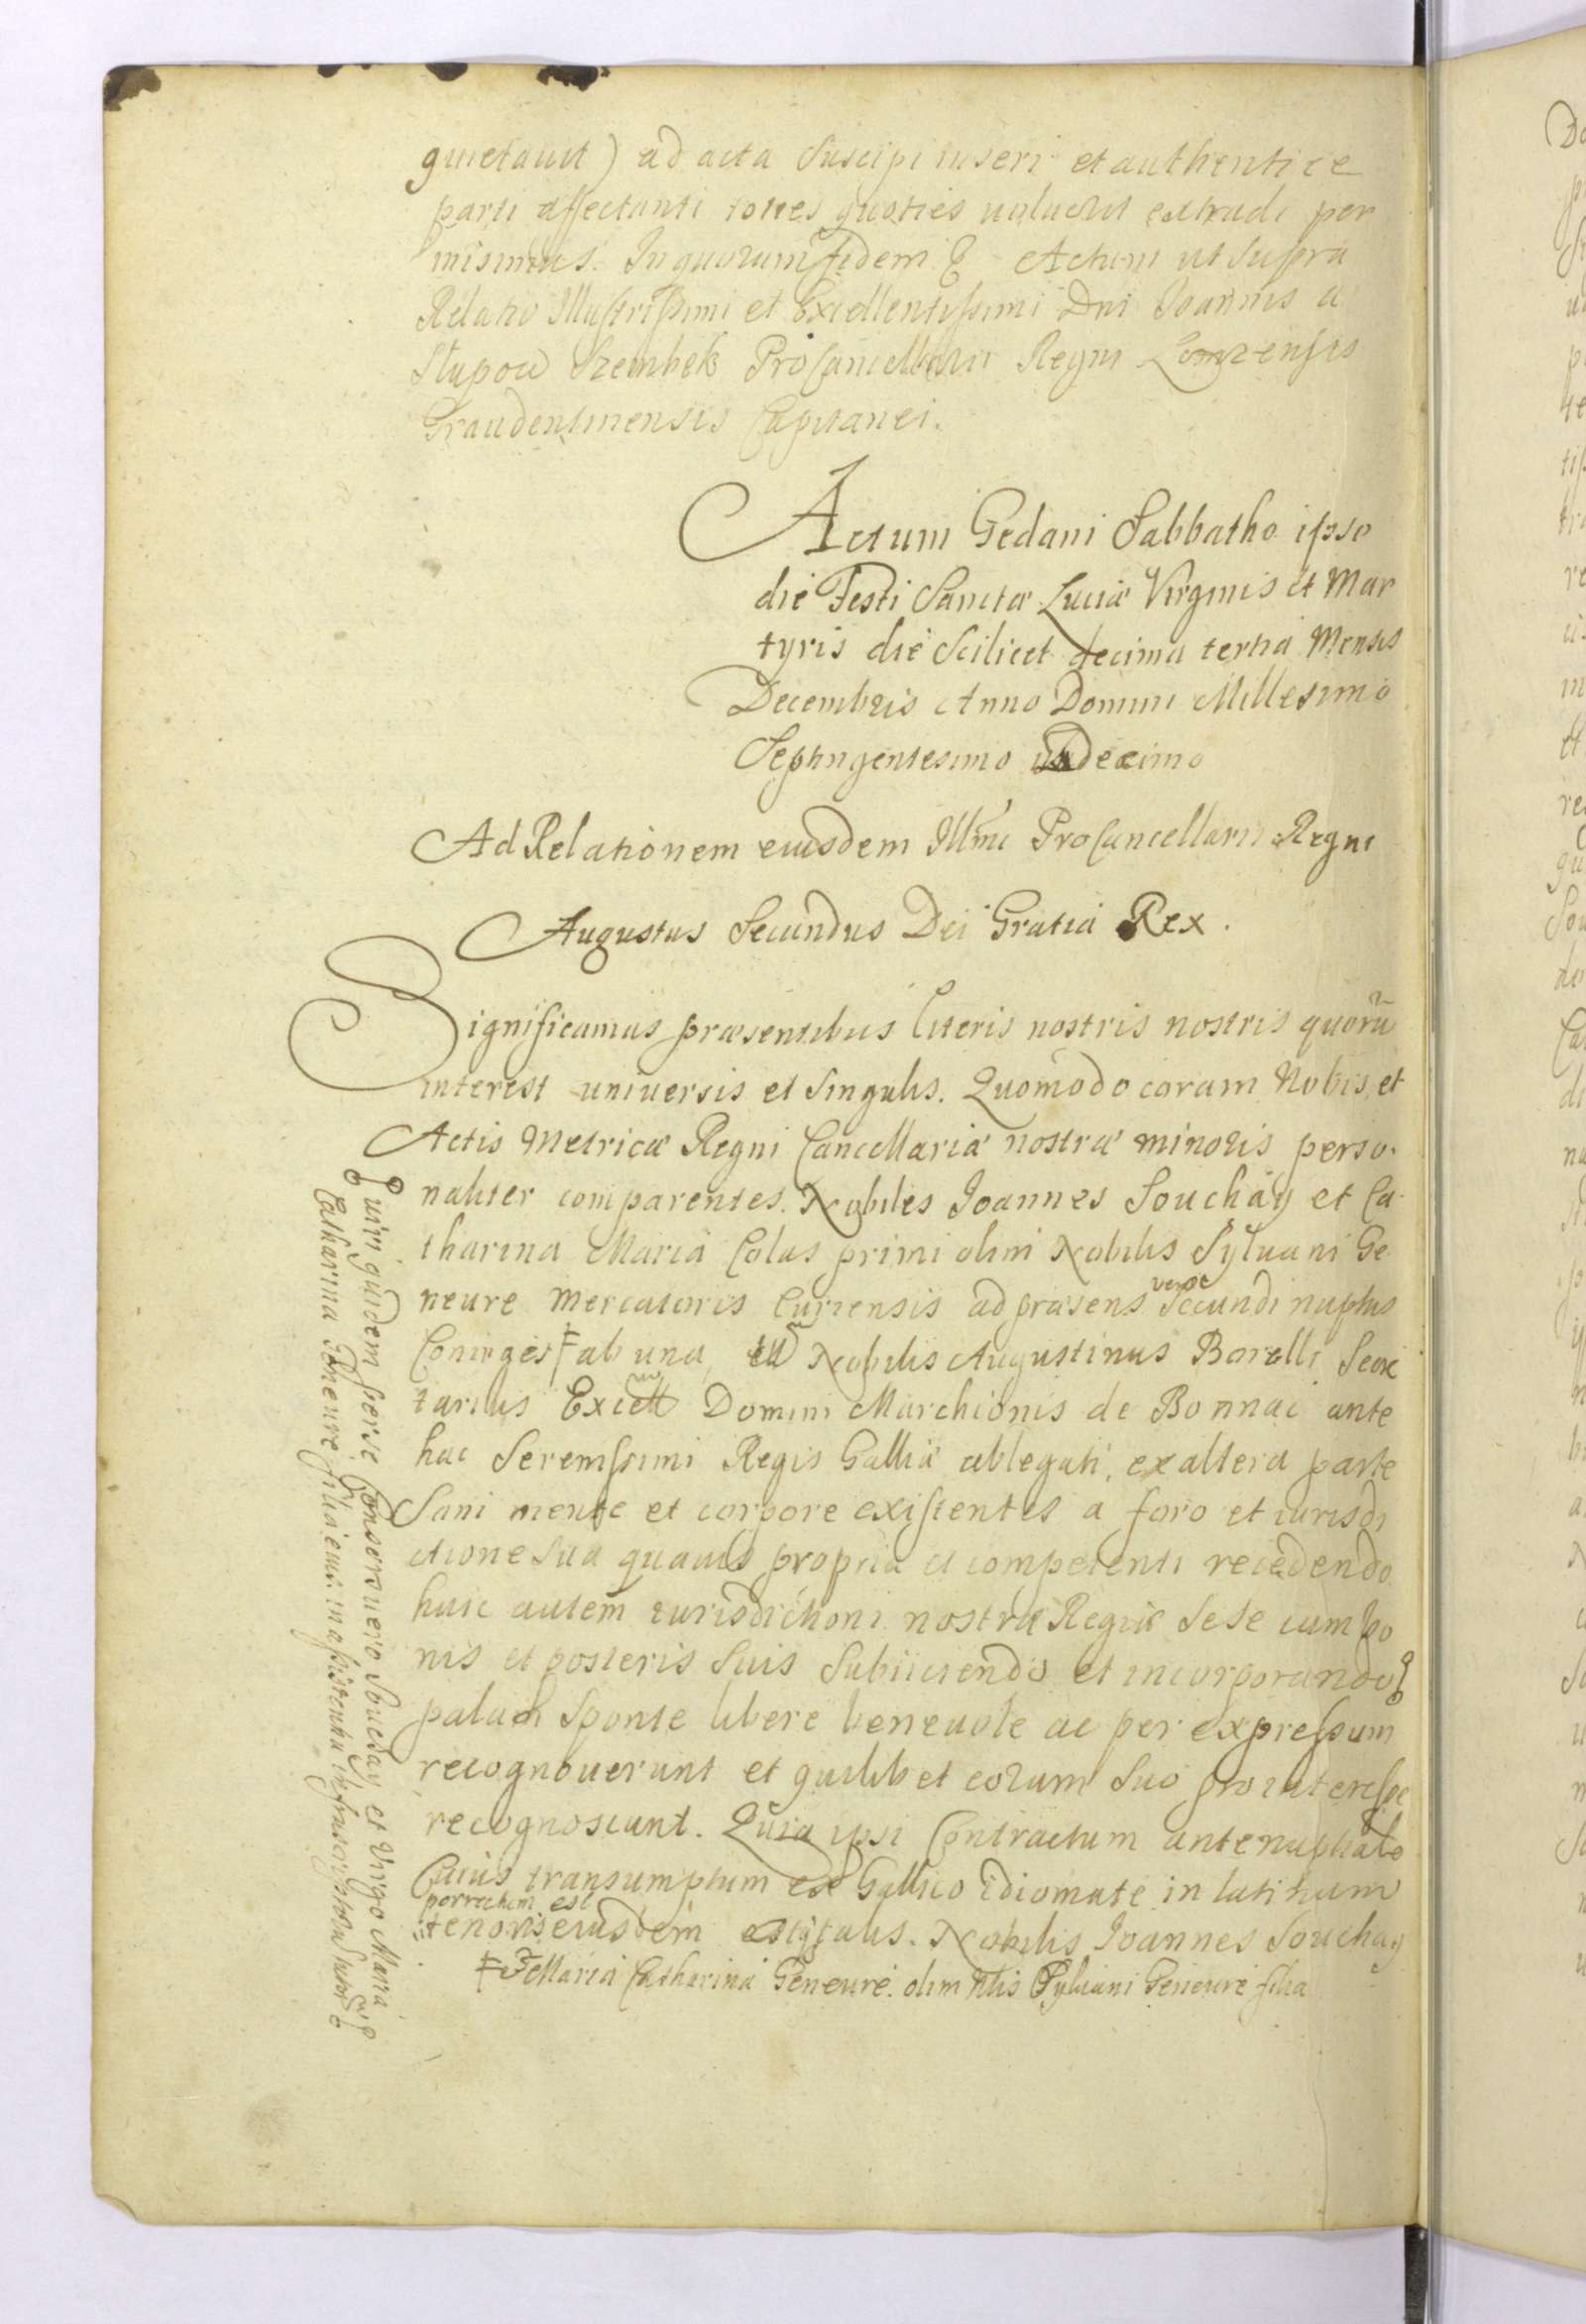 quietavit) ad acta suscipi inseri et authentice
parti affectanti toties quoties voluerit extradi per
misimus. In quorum fidem Actum ut supra
Relatio Illustrissimi et Excellentissimi Dni Joannis a
Słupow Szembek ProCancellarii Regni Lomzensis
Graudentinensis Capitanei.
Actum Gedani Sabbatho ipso
die Festi Sanctæ Luciæ Virginis et Mar
tyris die Scilicet decima tertia Mensis
Decembris Anno Domini Millesimo
Septingentesimo undecimo
Ad Relationem eiusdem Illmi ProCancellarii Regni
Augustus Secundus Dei Gratia Rex.
Significamus præsentibus literis nostris nostris quorũ
interest universis et singulis. Quomodo coram Nobis et
Actis Metricæ Regni Cancellariæ nostræ minoris perso
naliter comparentes. Nobiles Joannes Souchay et Ca
tharina Maria Colas primi olim Nobilis Sylvani Ge
neure Mercatoris Curiensis ad præsens vero secundi nuptus
Coniuges ab una, Nobilis Augustinus Borelli Secre
tarius Domini Marchionis de Bonnac ante
hac Serenissimi Regis Galliæ ablegati, ex altera parte
Sani mente et corpore existentes a foro et iurisdi
ctione sua quavis propria et competenti recedendo
huic autem iurisdictioni nostræ Regiæ sese cum bo
nis et posteris suis subiiciendo et incorporando
palam sponte libere benevole ac per expressum
recognoverunt et quilibet eorum suo pro interesse
recognoscunt. Quia ipsi Contractum antenuptiale
Cuius transumptum ex Gallico idiomate in latinum
porrectum est
tenoris eiusdem est talis. Nobilis Joannes Souchay
Maria Catharina Geneure olim Nlis Sylvani Geneure filia
viri quidem per se Consors vero Souchay et Virgo Maria
Catharina Geneure filia eius in assistentia infrascriptorum